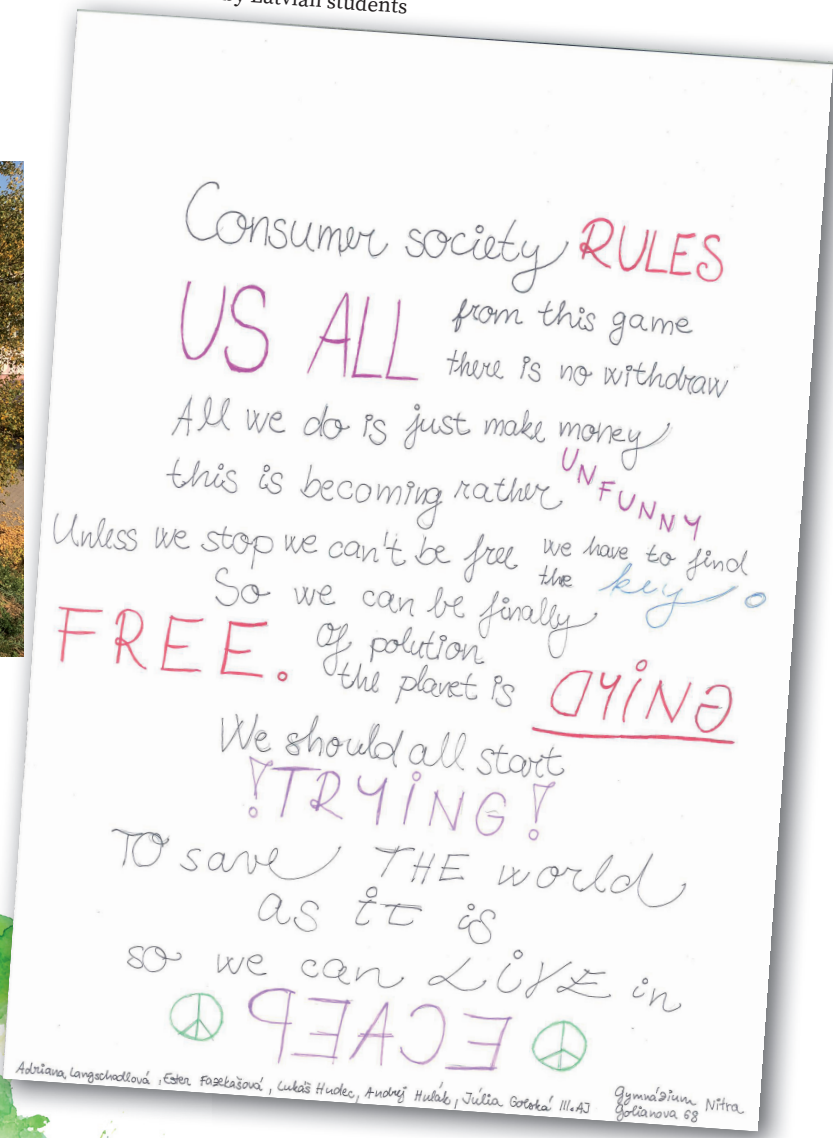 by Latvian students
Consumer society RULES
US ALL from this game
there is no withdraw
All we do is just make money
this is becoming rather UNFUNNY
Unless we stop we can't be free we have to find
the key
So we can be finally
FREE. Of polution
the planet is DYING
We should all start
!TRYING!
TO save THE world
as it is
so we can LIVE in
PEACE
Adriana Langschadlová, Ester Fazekašová, Lukáš Hudec, Andrej Hulák, Júlia Gotská III.AJ Gymnázium Nitra
Golianova 68